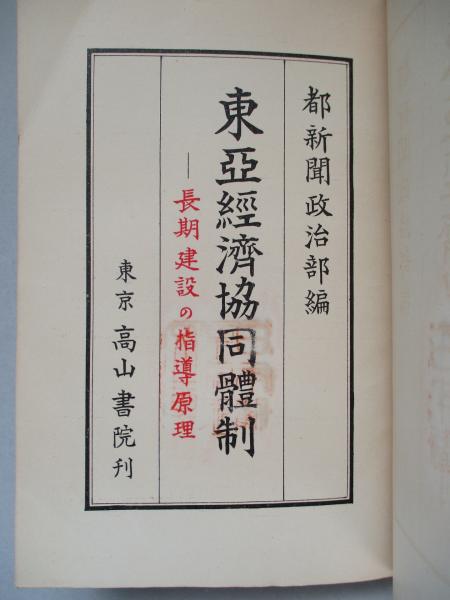 都新聞政治部編
東亞經濟協同體制
—長期建設の指導原理
東京 高山書院刊